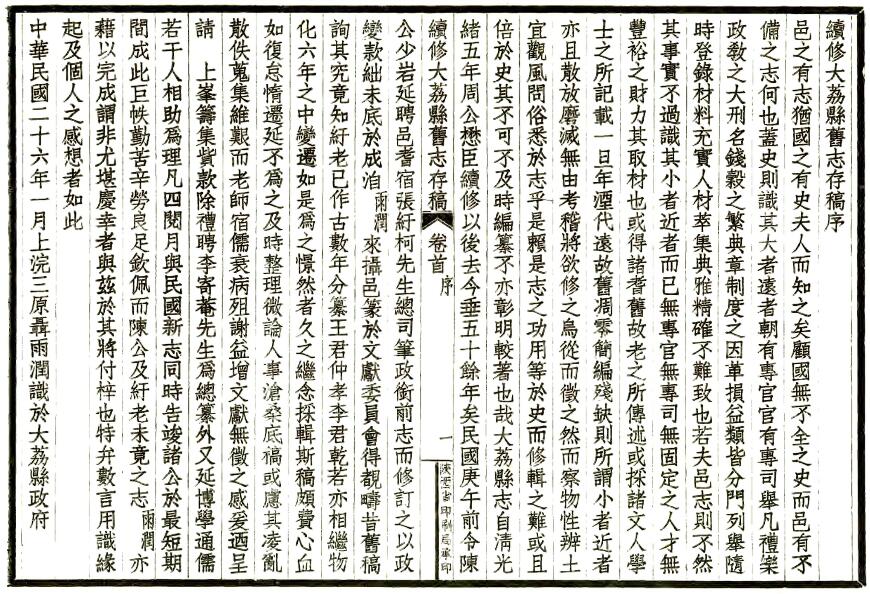 續修大荔縣舊志存稿序
邑之有志猶國之有史夫人而知之矣顧國無不全之史而邑有不
備之志何也蓋史則識其大者遠者朝有專官官有專司舉凡禮樂
政敎之大刑名錢穀之繁典章制度之因革損益類皆分門列舉隨
時登錄材料充實人材萃集典雅精確不難致也若夫邑志則不然
其事實不過識其小者近者而已無專官無專司無固定之人才無
豐裕之財力其取材也或得諸耆舊故老之所傳述或採諸文人學
士之所記載一旦年湮代遠故舊凋零簡編殘缺則所謂小者近者
亦且散放磨滅無由考稽將欲修之烏從而徵之然而察物性辨土
宜觀風問俗悉於志乎是賴是志之功用等於史而修輯之難或且
倍於史其不可不及時編纂不亦彰明較著也哉大荔縣志自淸光
緒五年周公懋臣續修以後去今垂五十餘年矣民國庚午前令陳
續修大荔縣舊志存稿 卷首 序 一 陝西省印刷局承印
公少岩延聘邑耆宿張紆柯先生總司筆政銜前志而修訂之以政
變款絀未底於成洎雨潤來攝邑篆於文獻委員會得覩疇昔舊稿
詢其究竟知紆老已作古數年分纂王君仲孝李君乾若亦相繼物
化六年之中變遷如是爲之憬然者久之繼念採輯斯稿頗費心血
如復怠惰遷延不爲之及時整理微論人事滄桑底稿或應其凌亂
散佚蒐集維艱而老師宿儒衰病殂謝益增文獻無徵之感爰迺呈
請 上峯籌集貲款除禮聘李寄菴先生爲總纂外又延博學通儒
若干人相助爲理凡四閱月與民國新志同時告竣諸公於最短期
間成此巨帙勤苦辛勞良足欽佩而陳公及紆老未竟之志雨潤亦
藉以完成謂非尤堪慶幸者與茲於其將付梓也特弁數言用識緣
起及個人之感想者如此
中華民國二十六年一月上浣三原聶雨潤識於大荔縣政府